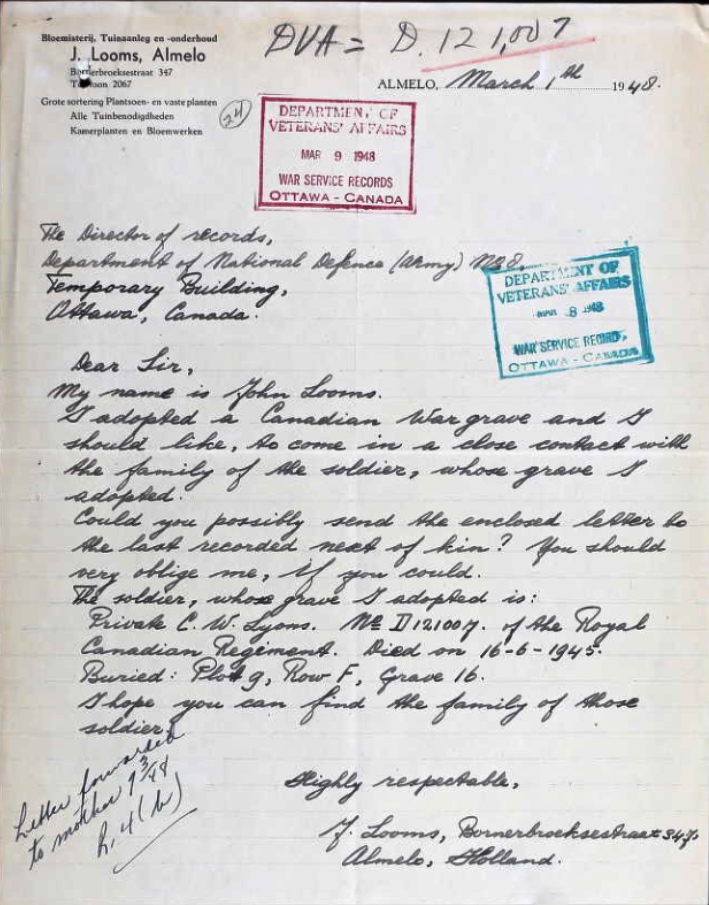 Bloemisterij, Tuinaanleg en -onderhoud
J. Looms, Almelo
Bornerbroeksestraat 347
Telefoon 2067
Grote sortering Plantsoen- en vaste planten
Alle Tuinbenodigdheden
Kamerplanten en Bloemwerken
DVA = D. 121,007
ALMELO, March 1th 1948.
24
DEPARTMENT OF
VETERANS' AFFAIRS
MAR 9 1948
WAR SERVICE RECORDS
OTTAWA - CANADA
The Director of records,
Department of National Defence (Army)
Temporary Building,
Ottawa, Canada.
DEPARTMENT OF
VETERANS' AFFAIRS
MAR 8 1948
WAR SERVICE RECORDS
OTTAWA - CANADA
Dear Sir,
My name is John Looms.
I adopted a Canadian War grave and I
should like, to come in a close contact with
the family of the soldier, whose grave I
adopted.
Could you possibly send the enclosed letter to
the last recorded next of kin? You should
very oblige me, if you could.
The soldier, whose grave I adopted is:
Private C. W. Lyons. No D121007. of the Royal
Canadian Regiment. Died on 16-6-1945.
Buried: Plot 9, Row F, Grave 16.
I hope you can find the family of those
soldier.
Highly respectable,
J. Looms, Bornerbroeksestraat 347,
Almelo, Holland.
Letter forwarded
to mother